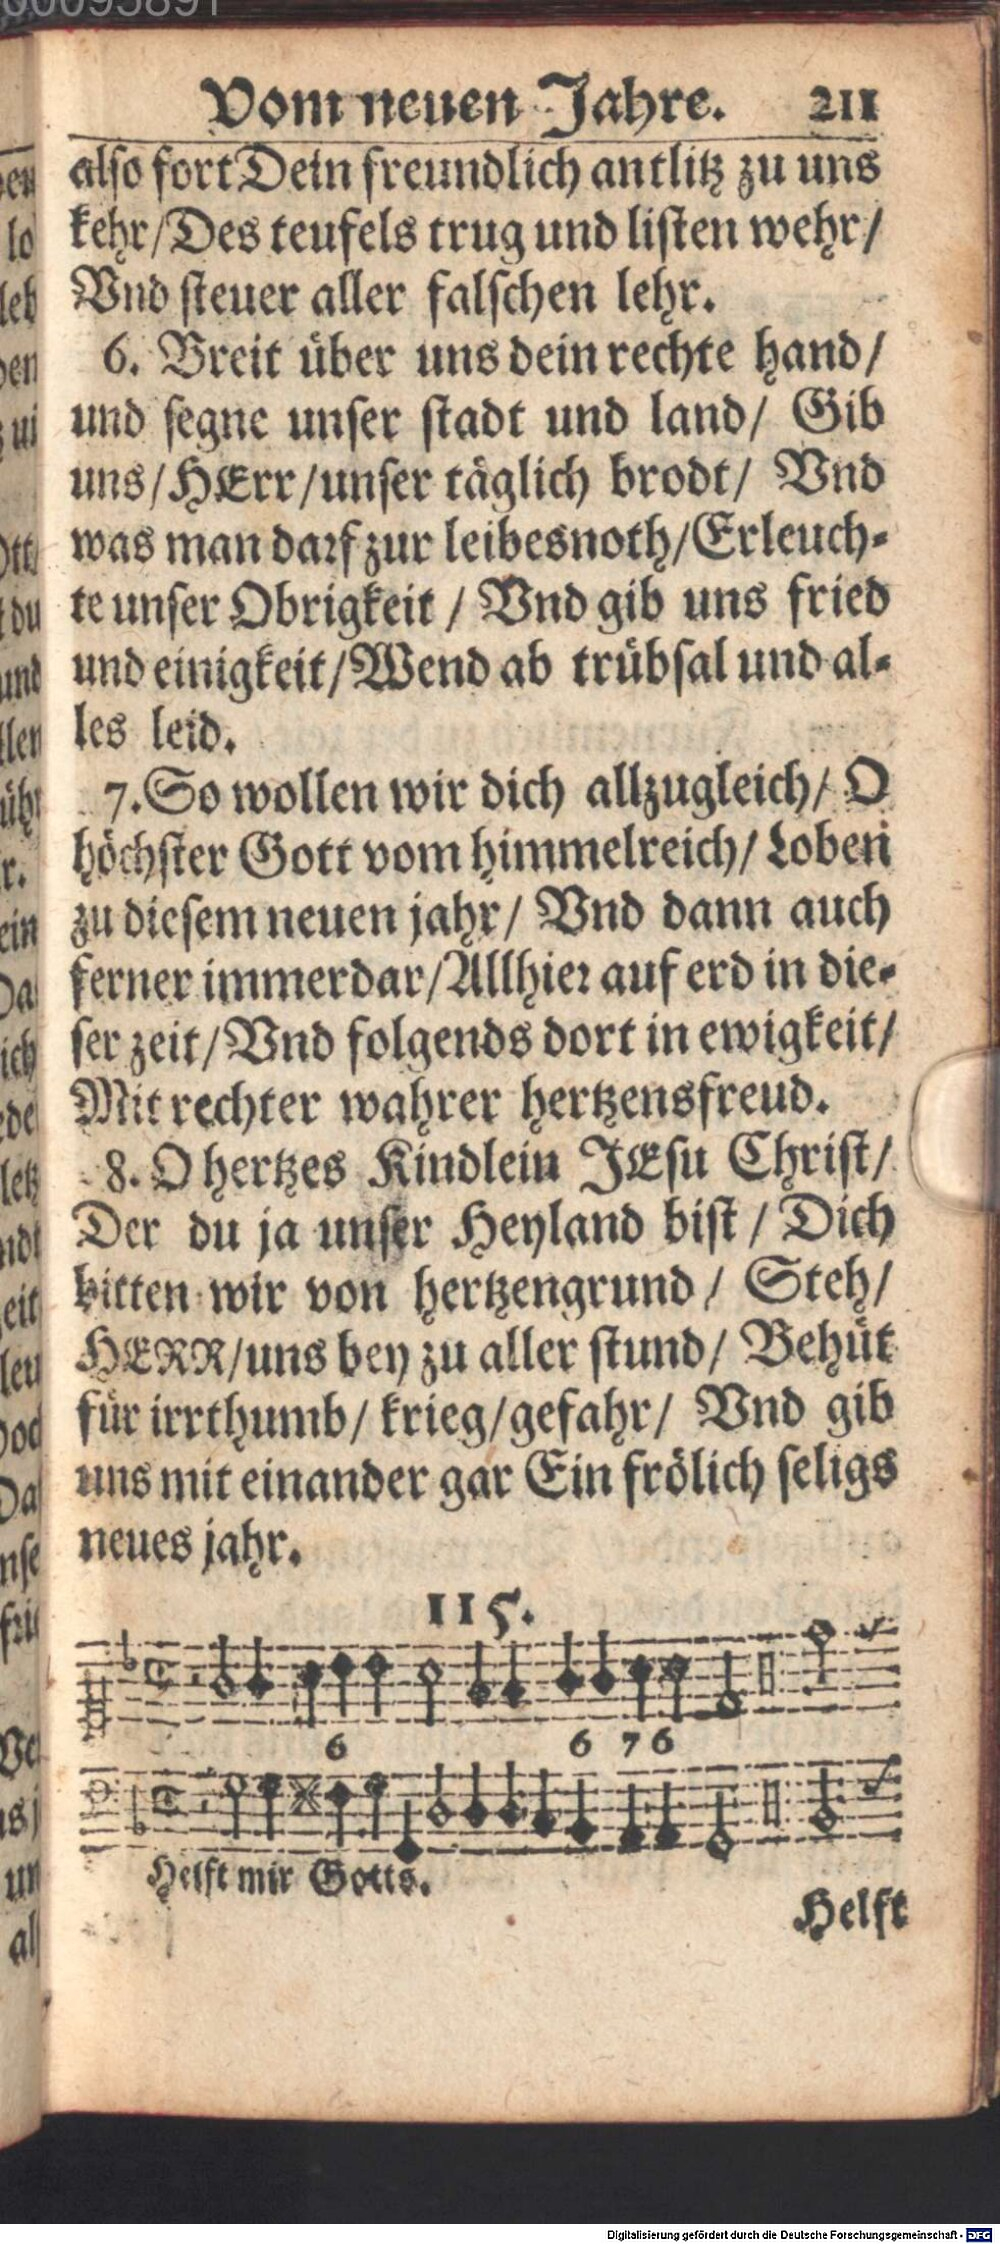 00095891
Vom neuen Jahre. 211
also fort Dein freundlich antlitz zu uns
kehr/Des teufels trug und listen wehr/
Vnd steuer aller falschen lehr.
6. Breit über uns dein rechte hand/
und segne unser stadt und land/ Gib
uns/HErr/unser täglich brodt/ Vnd
was man darf zur leibesnoth/Erleuch-
te unser Obrigkeit / Vnd gib uns fried
und einigkeit/Wend ab trübsal und al-
les leid.
7. So wollen wir dich allzugleich/ O
höchster Gott vom himmelreich/ Loben
zu diesem neuen jahr/ Vnd dann auch
ferner immerdar/Allhier auf erd in die-
ser zeit/Vnd folgends dort in ewigkeit/
Mit rechter wahrer hertzensfreud.
8. O hertzes Kindlein JEsu Christ/
Der du ja unser Heyland bist / Dich
bitten wir von hertzengrund / Steh/
HERR/uns bey zu aller stund/ Behüt
für irrthumb/ krieg/gefahr/ Vnd gib
uns mit einander gar Ein frölich seligs
neues jahr.
115.
6 6 7 6
Helft mir Gotts.
Helft
Digitalisierung gefördert durch die Deutsche Forschungsgemeinschaft - DFG